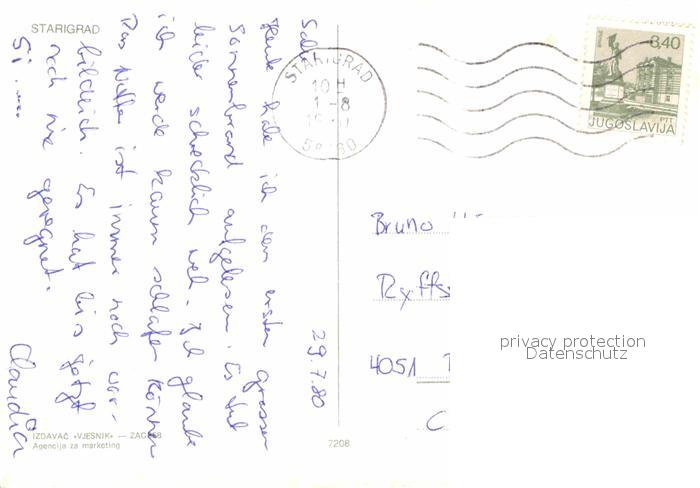 STARIGRAD
29.7.80
Salü
Heute habe ich den ersten grossen
Sonnenbrand aufgelesen. Es tut
leider schrecklich weh. Ich glaube
ich werde kaum schlafen können
Das Wetter ist immer noch vor-
bildlich. Es hat bis jetzt
noch nie geregnet.
Claudia
STARIGRAD
10 H
1-8
8,40
PTT
JUGOSLAVIJA
Bruno
Ryffs
4051
privacy protection
Datenschutz
IZDAVAČ «VJESNIK» — ZAGREB
Agencija za marketing
7208